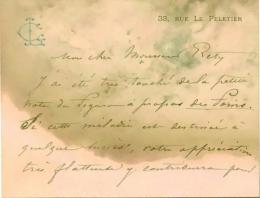 33, RUE LE PELETIER
Mon cher Monsieur
J'ai été très touché de la petite
note du Figaro à propos des
Si cette mélodie est destinée à
quelque succès, votre appréciation
très flatteuse y contribuera pour